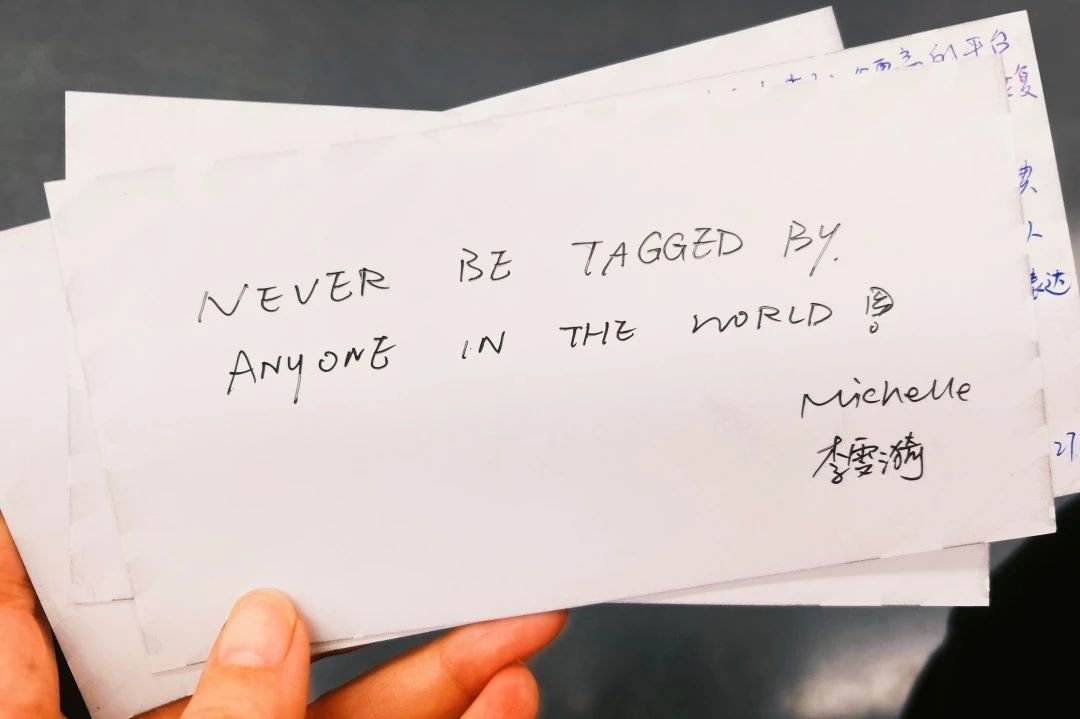 的平台
复
费
人
表达
27
NEVER BE TAGGED BY
ANYONE IN THE WORLD!
Michelle
李雪漪